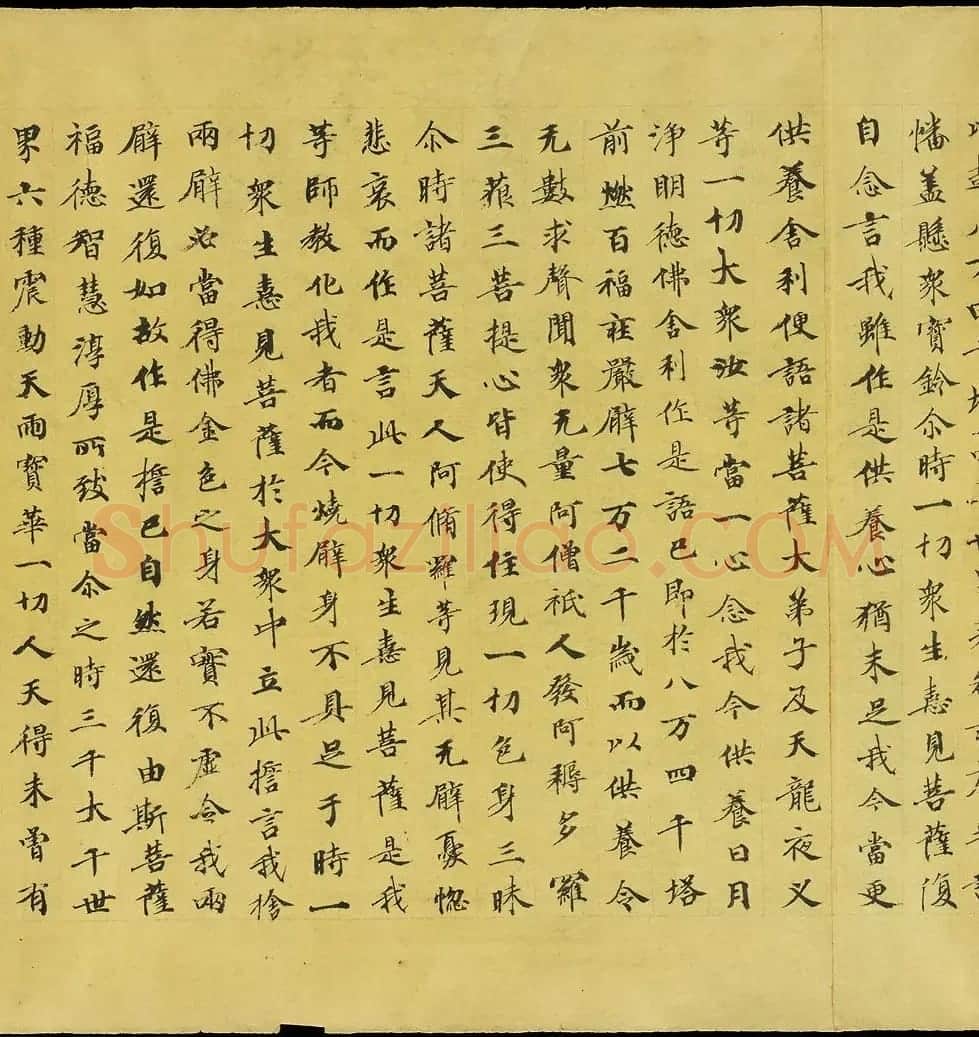 幡盖懸衆寶鈴尒時一切衆生憙見菩薩復
自念言我雖作是供養心猶未足我今當更
供養舍利便語諸菩薩大弟子及天龍夜叉
等一切大衆汝等當一心念我今供養日月
淨明德佛舍利作是語已即於八万四千塔
前燃百福莊嚴臂七万二千歲而以供養令
无數求聲聞衆无量阿僧祇人發阿耨多羅
三藐三菩提心皆使得住現一切色身三昧
尒時諸菩薩天人阿脩羅等見其无臂憂惱
悲哀而作是言此一切衆生憙見菩薩是我
等師教化我者而今燒臂身不具足于時一
切衆生憙見菩薩於大衆中立此誓言我捨
兩臂必當得佛金色之身若實不虛令我兩
臂還復如故作是誓已自然還復由斯菩薩
福德智慧淳厚所致當尒之時三千大千世
界六種震動天雨寶華一切人天得未曾有
Shufaziliao.COM